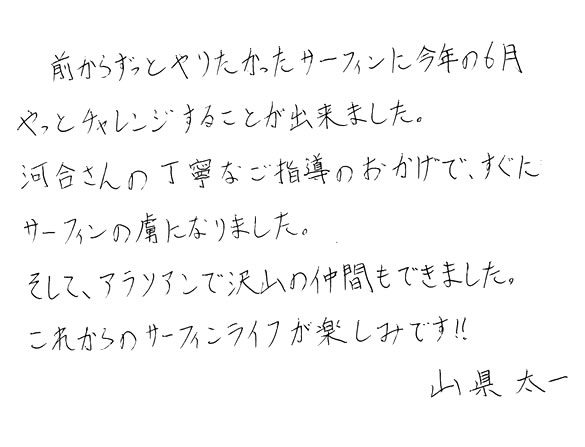 前からずっとやりたかったサーフィンに今年の6月
やっとチャレンジすることが出来ました。
河合さんの丁寧なご指導のおかげで、すぐに
サーフィンの虜になりました。
そして、アラソアンで沢山の仲間もできました。
これからのサーフィンライフが楽しみです!!
山県 太一